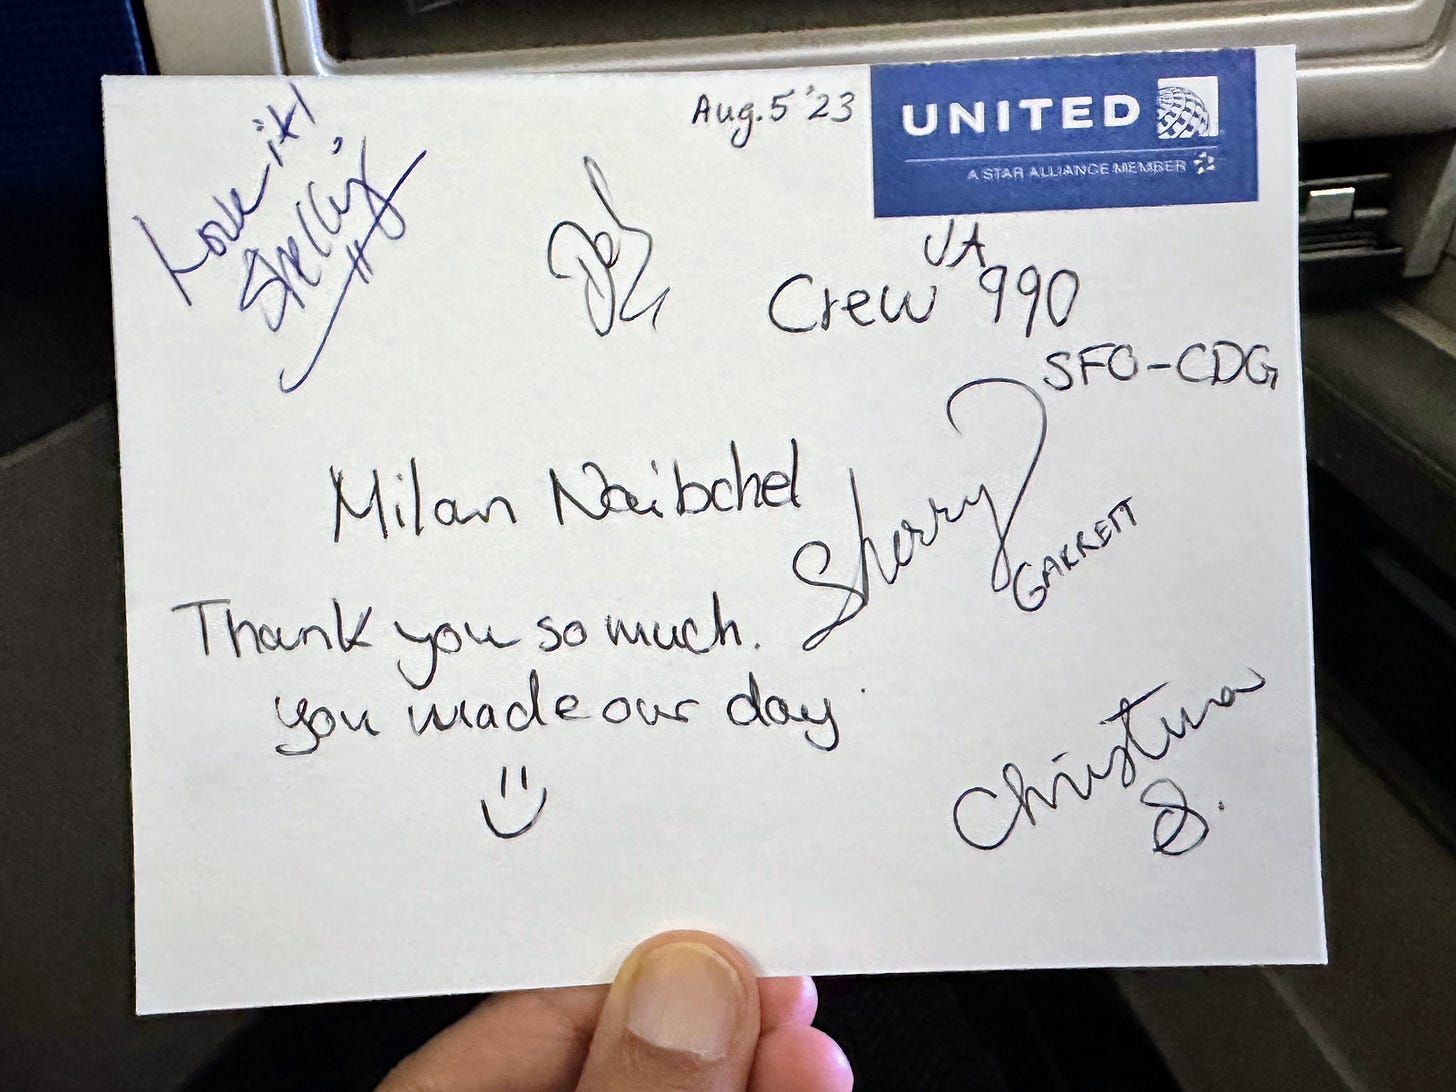 Aug. 5 '23
UNITED
A STAR ALLIANCE MEMBER
Love it!
Shelly
UA
Crew 990
SFO-CDG
Milan Naibchel
Sherry
GARRETT
Thank you so much.
you made our day.
Christina
S.